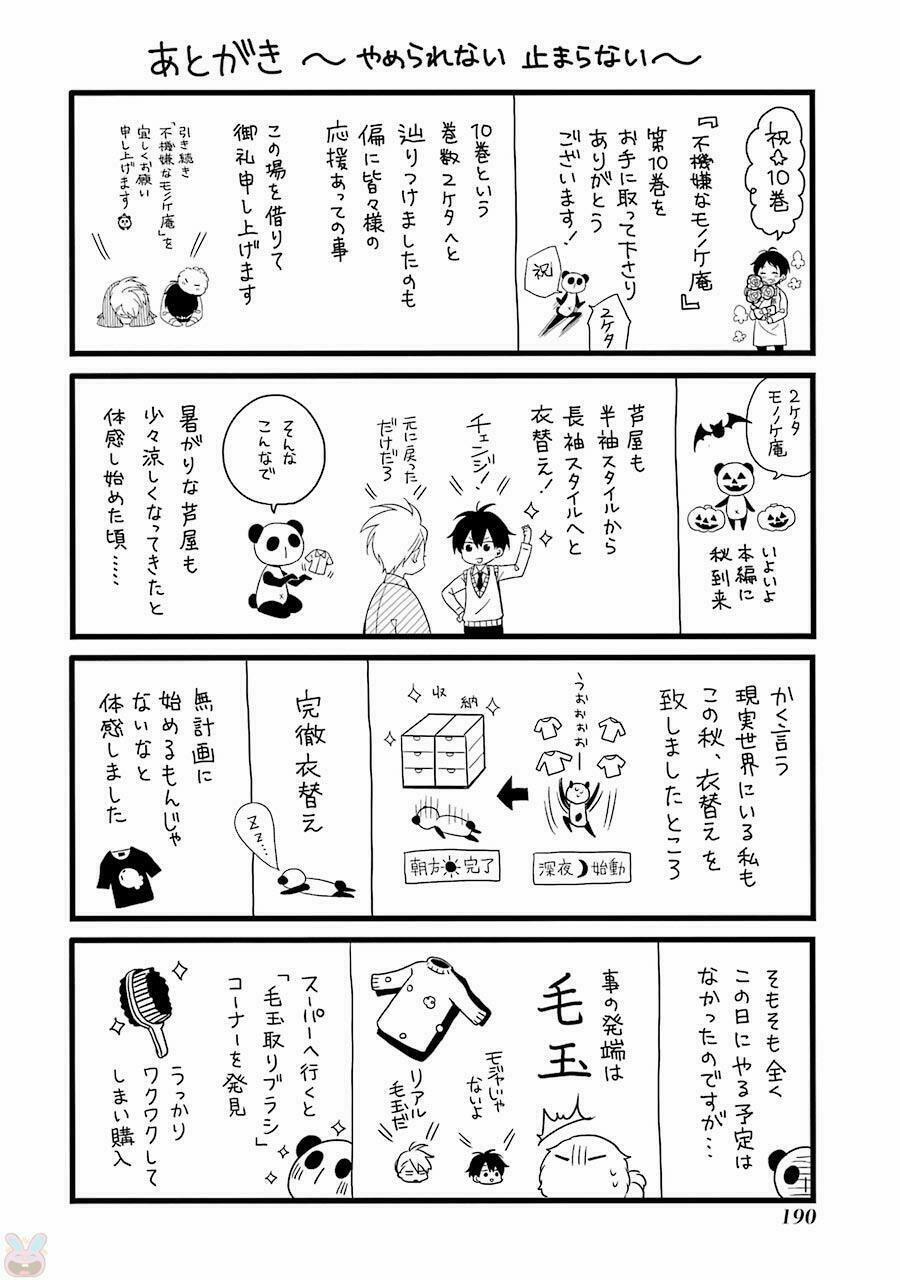 あとがき 〜やめられない 止まらない〜
祝☆10巻
『不機嫌なモノノケ庵』
第10巻を
お手に取って下さり
ありがとう
ございます!
祝
2ケタ
10巻という
巻数2ケタへと
辿りつけましたのも
偏に皆々様の
応援あっての事
この場を借りて
御礼申し上げます
引き続き
「不機嫌なモノノケ庵」を
宜しくお願い
申し上げます
2ケタ
モノノケ庵
いよいよ
本編に
秋到来
芦屋も
半袖スタイルから
長袖スタイルへと
衣替え!
チェンジ!
元に戻った
だけだろ
そんな
こんなで
暑がりな芦屋も
少々涼しくなってきたと
体感し始めた頃……
かく言う
現実世界にいる私も
この秋、衣替えを
致しましたところ
うぉぉぉぉー
深夜 始動
収納
朝方 完了
完徹衣替え
ZZ…
無計画に
始めるもんじゃ
ないなと
体感しました
そもそも全く
この日にやる予定は
なかったのですが…
事の発端は
毛玉
モジャじゃ
ないよ
リアル
毛玉だ
スーパーへ行くと
「毛玉取りブラシ」
コーナーを発見
うっかり
ワクワクして
しまい購入
190